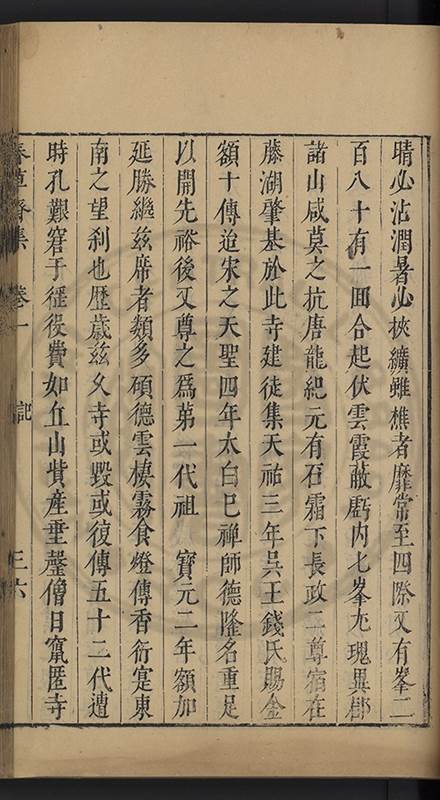 晴必沾潤暑必挾纊雖樵者靡常至四際又有峯二
百八十有一囬合起伏雲霞蔽虧内七峯尤瑰異鄰
諸山咸莫之抗唐龍紀元有石霜下長政二尊宿在
藤湖肇基於此寺建徒集天祐三年吳王錢氏賜金
額十傳迨宋之天聖四年太白巳禪師德隆名重足
以開先裕後又尊之爲第一代祖 寶元二年額加
延勝繼兹席者類多碩德雲棲霧食燈傳香衍寔東
南之望刹也歷歲兹久寺或毀或復傳五十二代遭
時孔艱窘于徭役費如丘山貲産垂罄僧日竄匿寺
春草齋集 卷一 記 三六